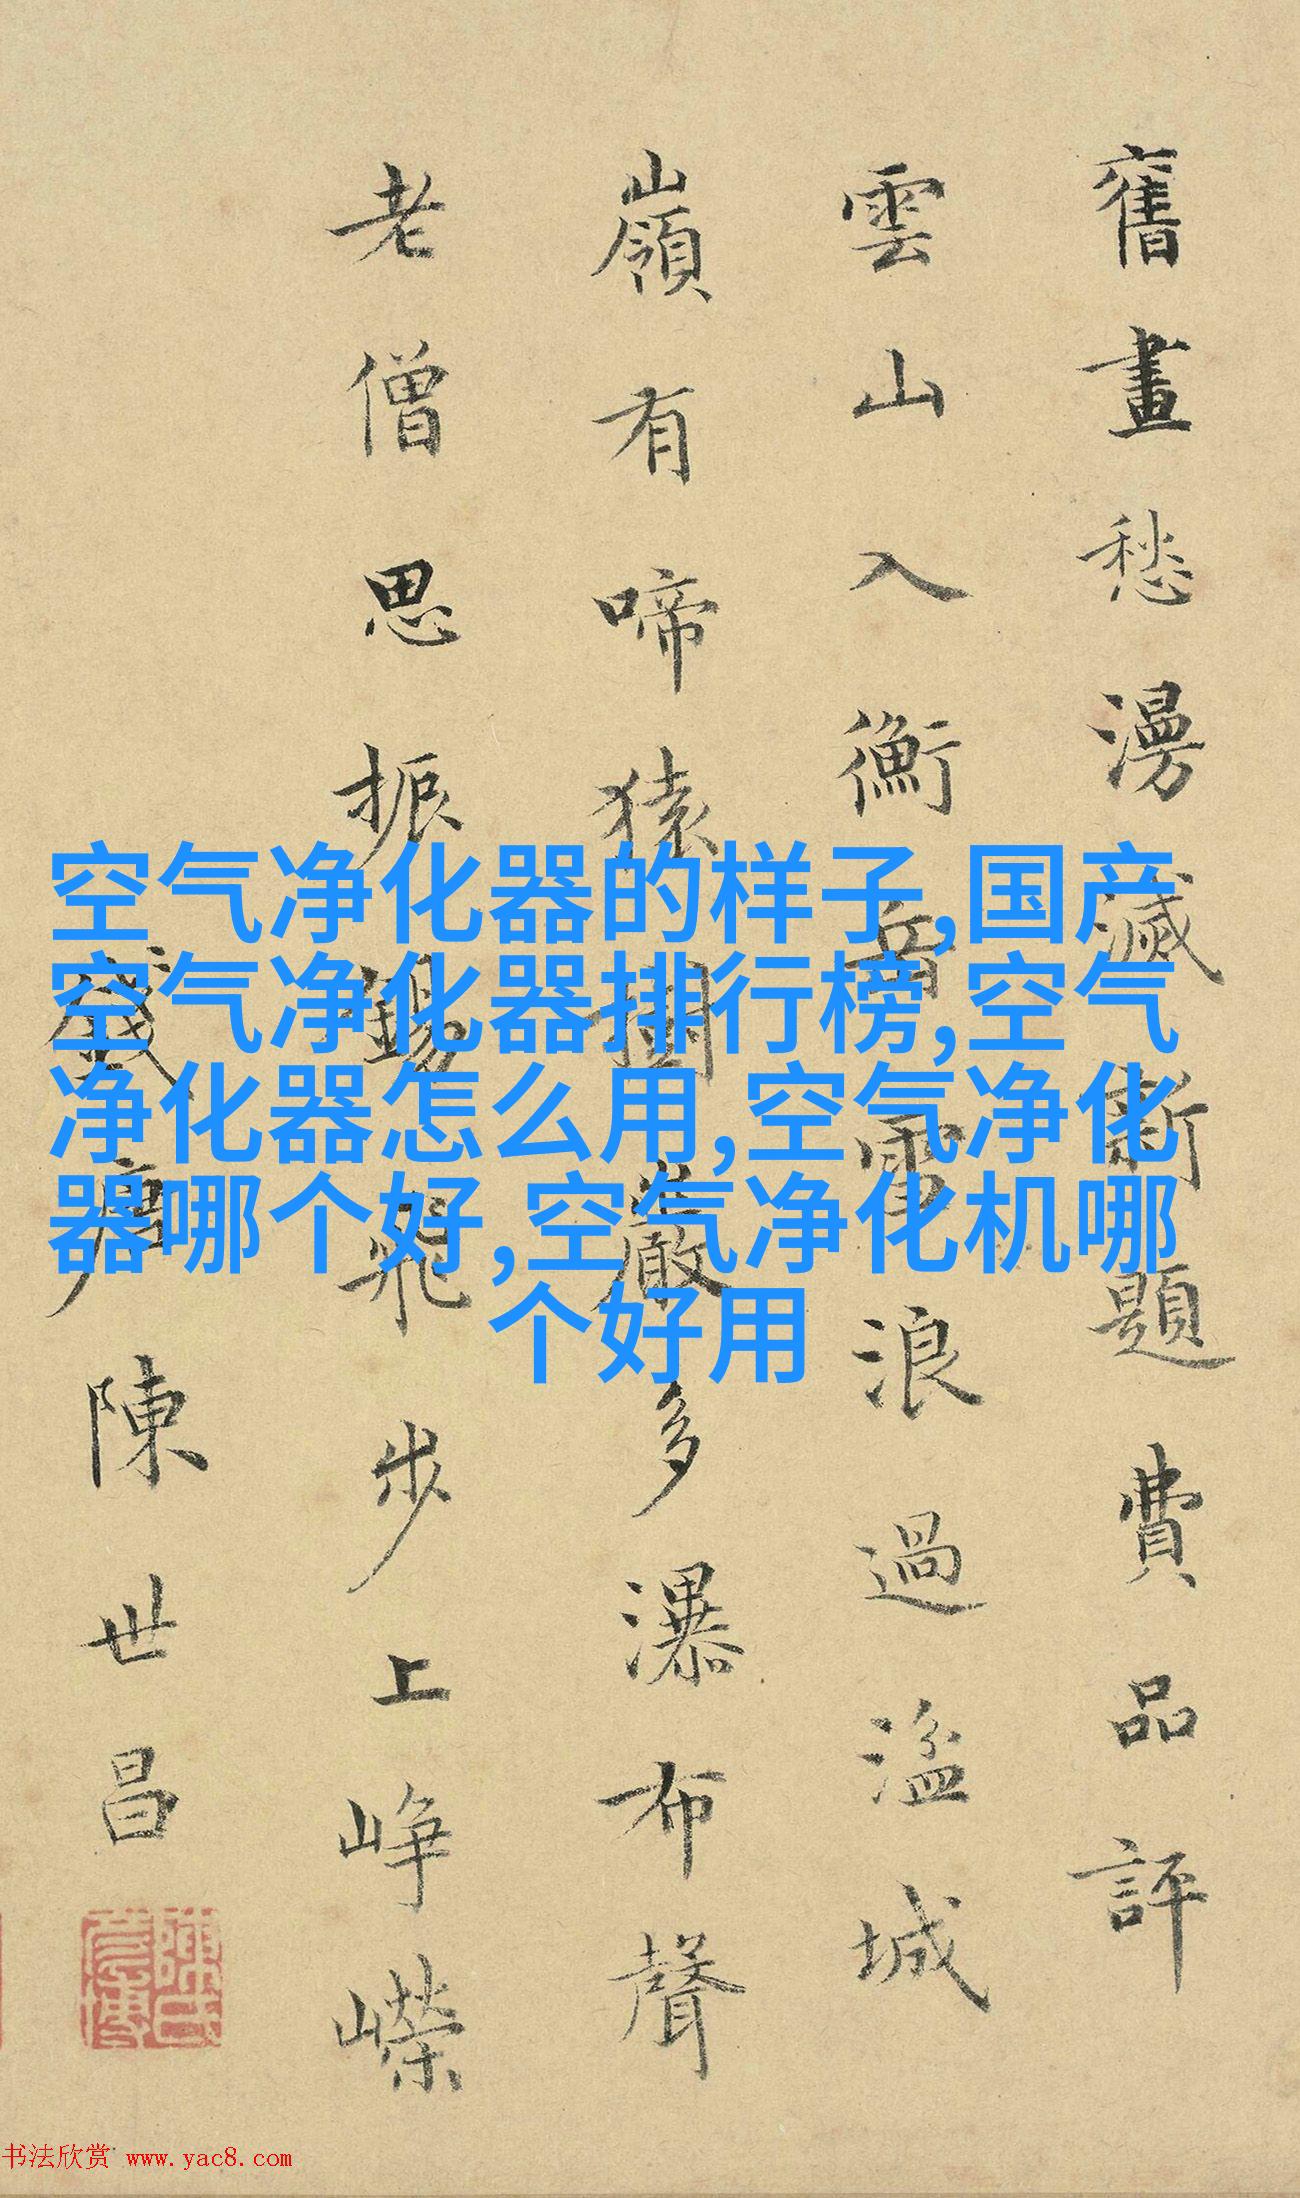 舊畫愁漫滅新題費品評
雲山入衡岳浪過湓城
嶺有啼猿巖多瀑布聲
老僧思振錫飛步上崢嶸
錢唐陳世昌
空气净化器的样子,国产
空气净化器排行榜,空气
净化器怎么用,空气净化
器哪个好,空气净化机哪
个好用
书法欣赏 www.yac8.com